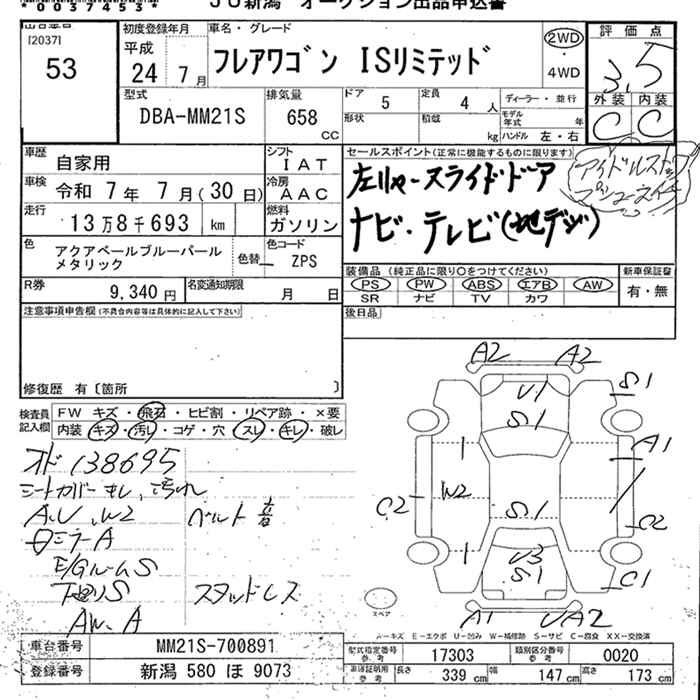 *0037453*
JU新潟 オークション出品申込書
出品番号
[2037]
53
初度登録年月
平成
24年 7月
車名・グレード
フレアワゴン ISリミテッド
2WD
・
4WD
評価点
3.5
外装 内装
C C
型式
DBA-MM21S
排気量
658
CC
ドア 5
定員 4人
形状
積載 kg
ディーラー・並行
モデル年式 年
ハンドル 左・右
車歴 自家用
シフト IAT
車検 令和 7年 7月(30日)
冷房 AAC
走行 13万8千693 km
燃料 ガソリン
色 アクアペールブルーパール
メタリック
色替
色コード ZPS
R券 9,340円
名変通知期限 月 日
セールスポイント(正常に機能するものに限ります)
左リヤースライドドア
ナビ・テレビ(地デジ)
アイドルストップ
プシュースイチ
装備品(純正品に限り○をつけてください)
PS PW ABS エアB AW
SR ナビ TV カワ
新車保証書
有・無
後日品
注意事項申告欄(不具合内容等は具体的に記入して下さい)
修復歴 有〔箇所 〕
検査員
記入欄
FW キズ・飛石・ヒビ割・リペア跡・×要
内装 キズ・汚レ・コゲ・穴・スレ・キレ・破レ
オド 138695
シートカバーキレ、汚れ
A.U.W2 ベルト音
ミラーA
E/GルームS
下廻りS スタッドレス
AW.A
A2 A2
U1
S1
S1
1
A1
W2
C2
S1
C2
1
U3
S1
C1
A1
UA2
スペア
A-キズ E-エクボ U-凹み W-補修跡 S-サビ C-腐食 XX-交換済
車台番号 MM21S-700891
登録番号 新潟 580 ほ 9073
型式指定番号
参考
17303
類別区分番号
参考
0020
車庫証明用
参考
長さ 339 cm
幅 147 cm
高さ 173 cm